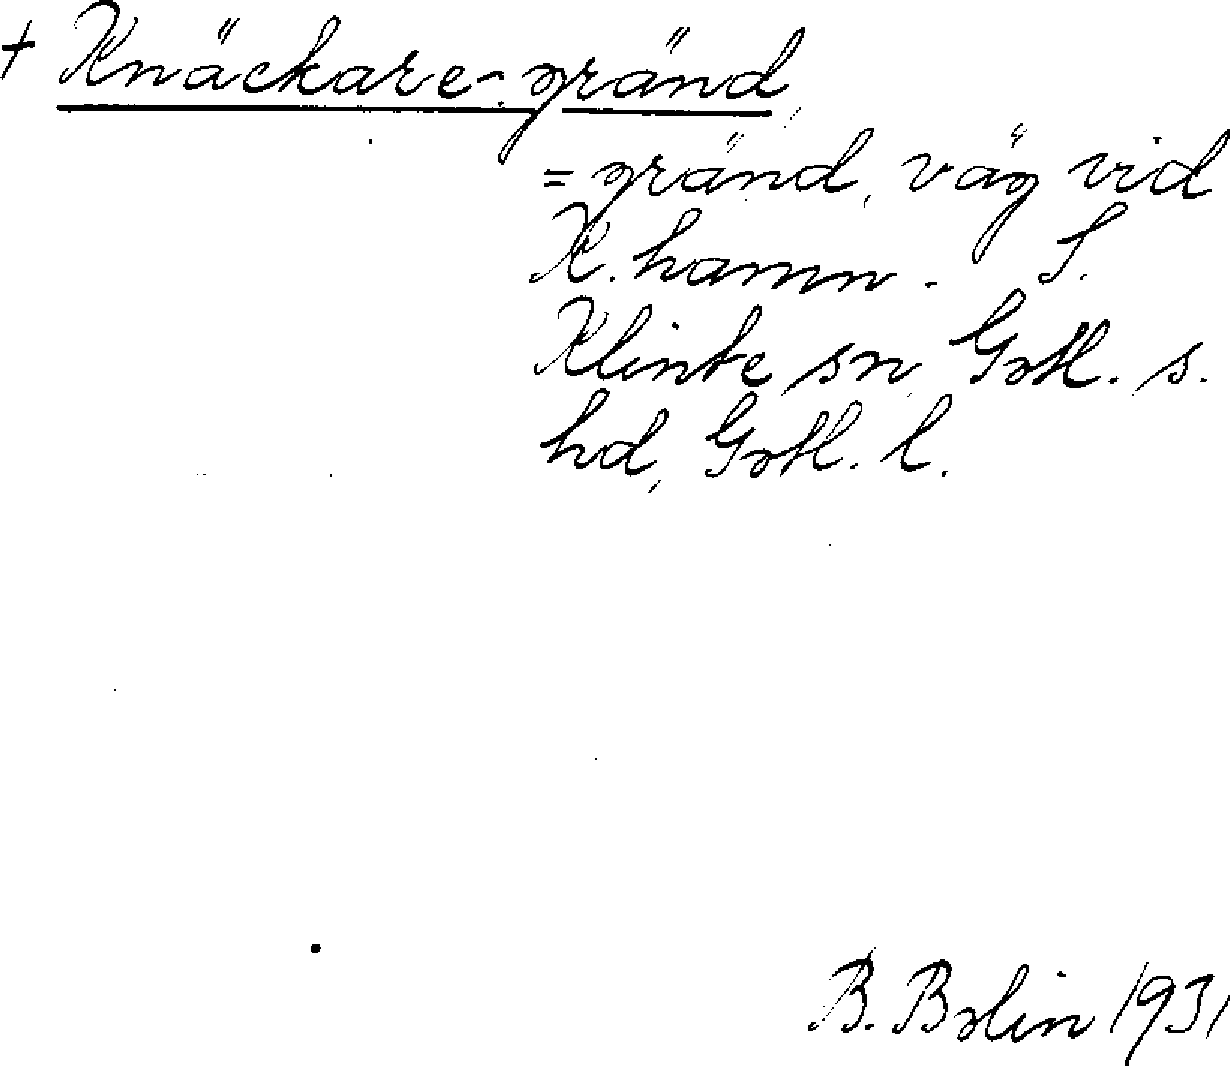 + Knäckare-gränd,
= gränd, väg vid
K. hamn. S.
Klinte sn, Gotl. s.
hd, Gotl. l.
B. Bolin 1931